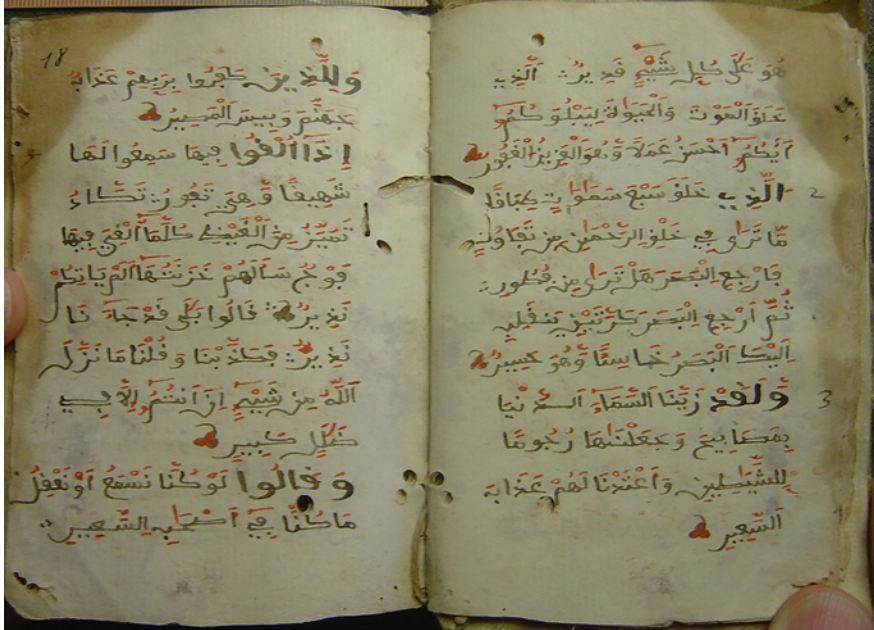 هُوَ عَلَى كُلِّ شَيْءٍ قَدِيرٌ الَّذِي
خَلَقَ الْمَوْتَ وَالْحَيَوٰةَ لِيَبْلُوَكُمُ
أَيُّكُمُ أَحْسَنُ عَمَلًا وَهُوَ الْعَزِيزُ الْغَفُورُ
الَّذِي خَلَقَ سَبْعَ سَمَٰوَٰتٍ طِبَاقًا 2
مَّا تَرَىٰ فِي خَلْقِ الرَّحْمَٰنِ مِن تَفَاوُتٍ
فَارْجِعِ الْبَصَرَ هَلْ تَرَىٰ مِن فُطُورٍ
ثُمَّ ارْجِعِ الْبَصَرَ كَرَّتَيْنِ يَنقَلِبْ
إِلَيْكَ الْبَصَرُ خَاسِئًا وَهُوَ حَسِيرٌ
وَلَقَدْ زَيَّنَّا السَّمَاءَ الدُّنْيَا 3
بِمَصَابِيحَ وَجَعَلْنَٰهَا رُجُومًا
لِّلشَّيَٰطِينِ وَأَعْتَدْنَا لَهُمْ عَذَابَ
السَّعِيرِ
18
وَلِلَّذِينَ كَفَرُوا بِرَبِّهِمْ عَذَابُ
جَهَنَّمَ وَبِيسَ الْمَصِيرُ
إِذَا أُلْقُوا فِيهَا سَمِعُوا لَهَا
شَهِيقًا وَهِيَ تَفُورُ تَكَادُ
تَمَيَّزُ مِنَ الْغَيْظِ كُلَّمَا أُلْقِيَ فِيهَا
فَوْجٌ سَأَلَهُمْ خَزَنَتُهَا أَلَمْ يَاتِكُمْ
نَذِيرٌ قَالُوا بَلَىٰ قَدْ جَاءَنَا
نَذِيرٌ فَكَذَّبْنَا وَقُلْنَا مَا نَزَّلَ
اللَّهُ مِن شَيْءٍ إِنْ أَنتُمُ إِلَّا فِي
ضَلَٰلٍ كَبِيرٍ
وَقَالُوا لَوْ كُنَّا نَسْمَعُ أَوْ نَعْقِلُ
مَا كُنَّا فِي أَصْحَٰبِ السَّعِيرِ